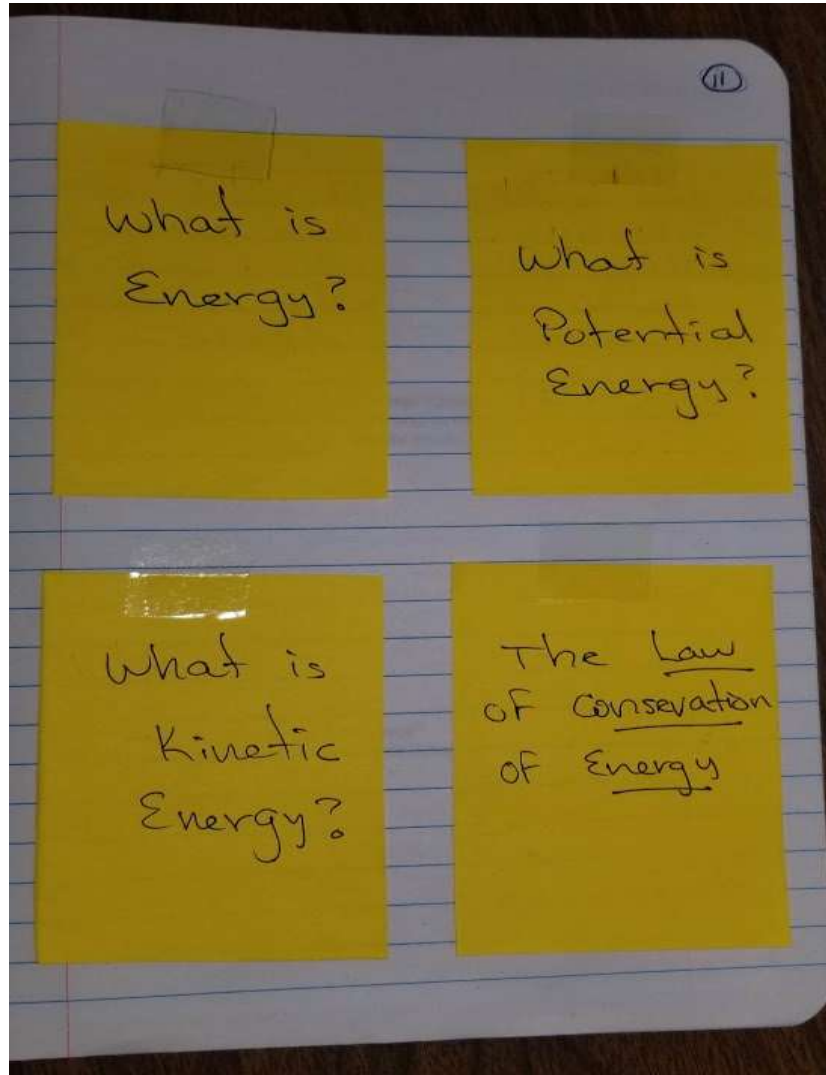 11
What is
Energy?
What is
Potential
Energy?
What is
Kinetic
Energy?
The Law
of Consevation
of Energy